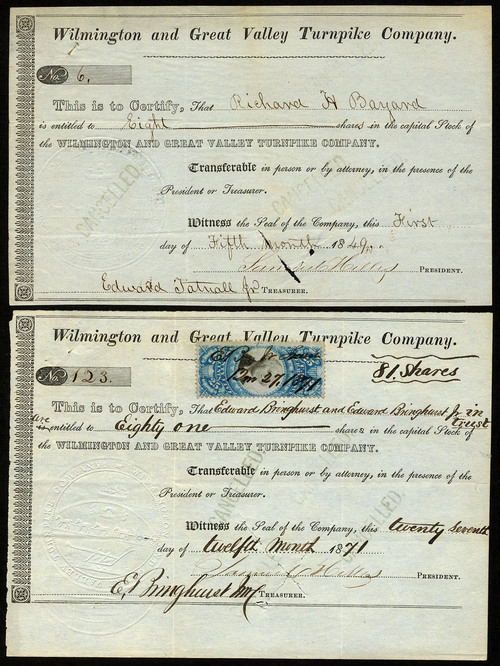 Wilmington and Great Valley Turnpike Company.
No. 6.
This is to Certify, That Richard H Bayard
is entitled to Eight shares in the capital Stock of
the WILMINGTON AND GREAT VALLEY TURNPIKE COMPANY.
CANCELLED.
Transferable in person or by attorney, in the presence of the
President or Treasurer.
Witness the Seal of the Company, this First
day of Fifth Month 1849.
Samuel Hilles PRESIDENT.
Edward Tatnall Jr TREASURER.
Wilmington and Great Valley Turnpike Company.
No. 123.
81 Shares
27, 1871
This is to Certify, That Edward Bringhurst and Edward Bringhurst Jr in trust
are entitled to Eighty one shares in the capital Stock of
the WILMINGTON AND GREAT VALLEY TURNPIKE COMPANY.
CANCELLED.
Transferable in person or by attorney, in the presence of the
President or Treasurer.
Witness the Seal of the Company, this twenty seventh
day of twelfth Month 1871
Samuel Hilles PRESIDENT.
E. Bringhurst TREASURER.